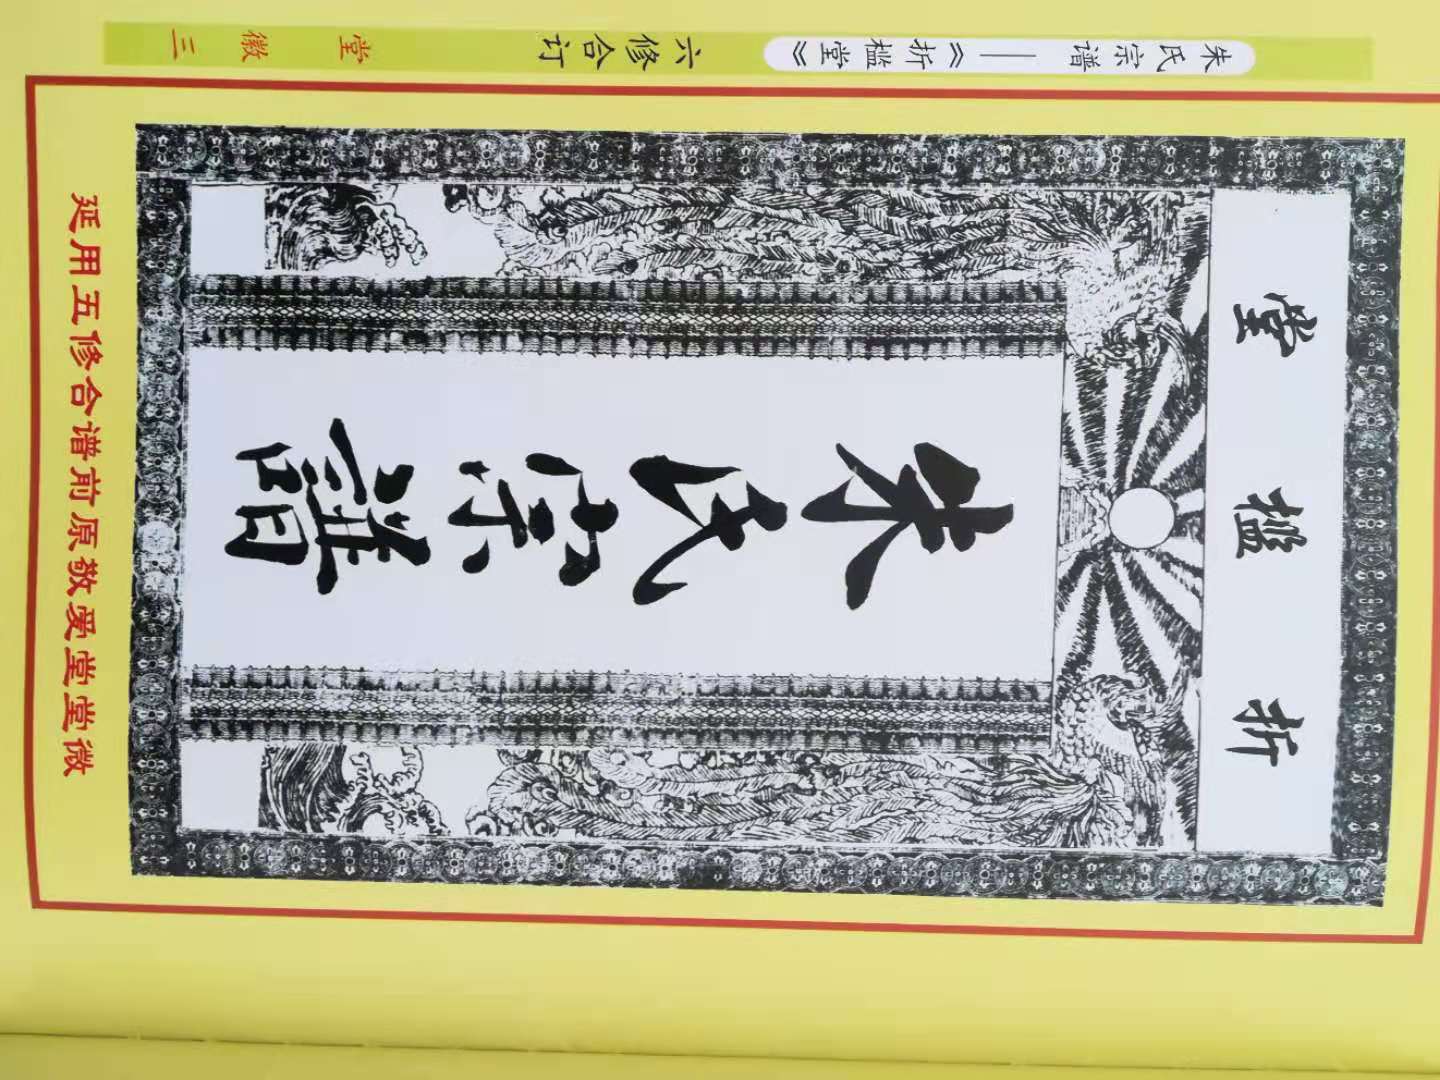 折槛堂
朱氏宗譜
朱氏宗谱——《折槛堂》 六修合订 堂徽 三
延用五修合谱前原敬爱堂堂微